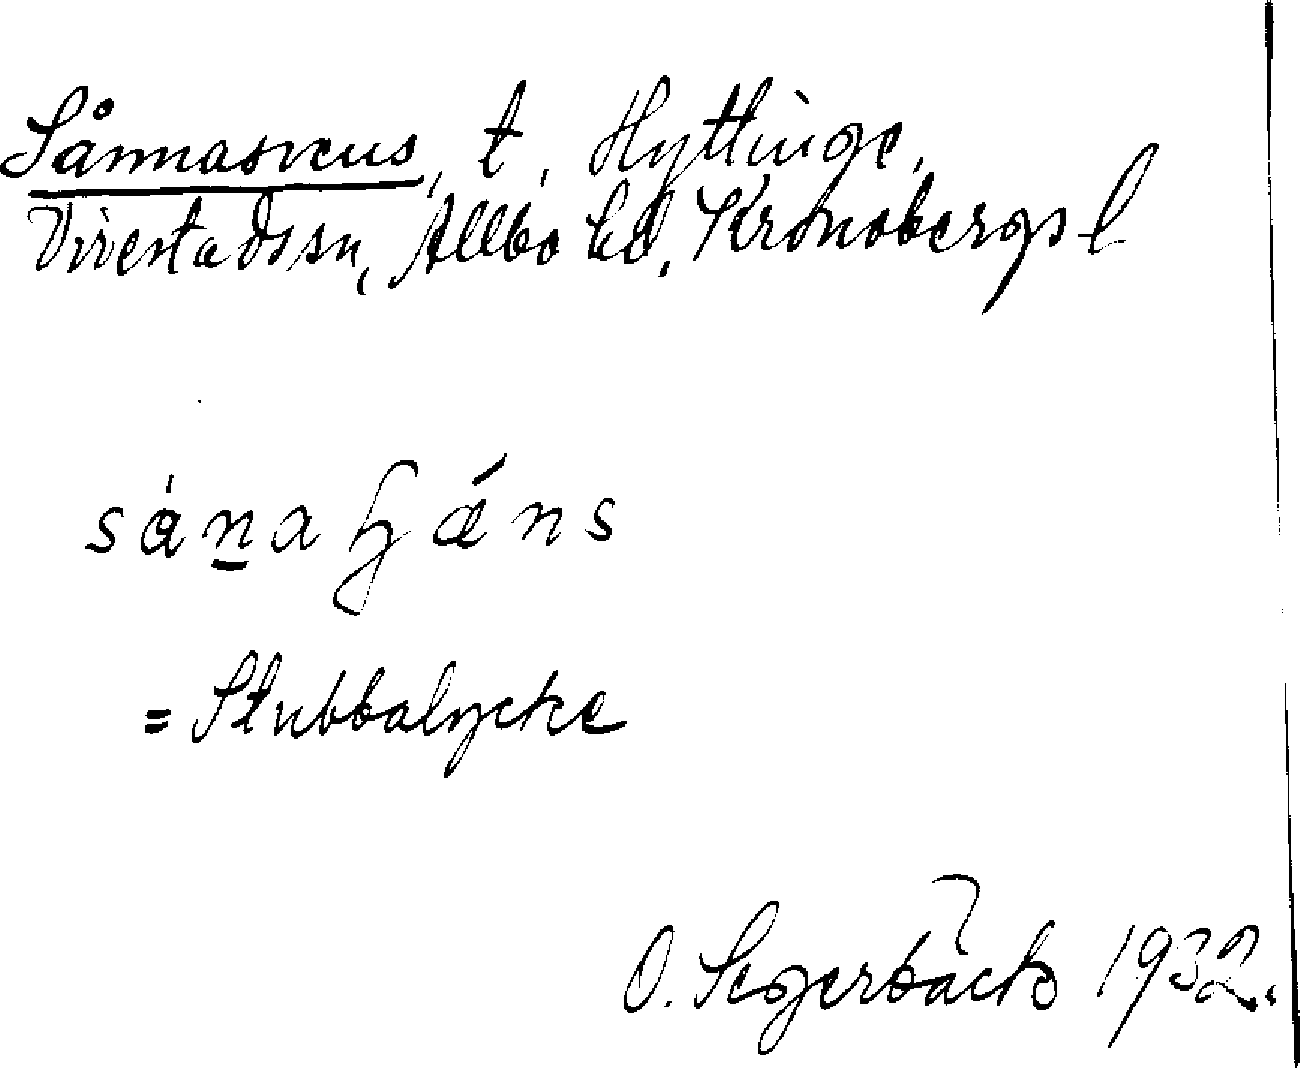 Sånnasveus, t. Hyttinge,
Virestads sn, Allbo hd, Kronobergs l
sánaɧáns
= Stubbalycke
O. Segerbäck 1932.